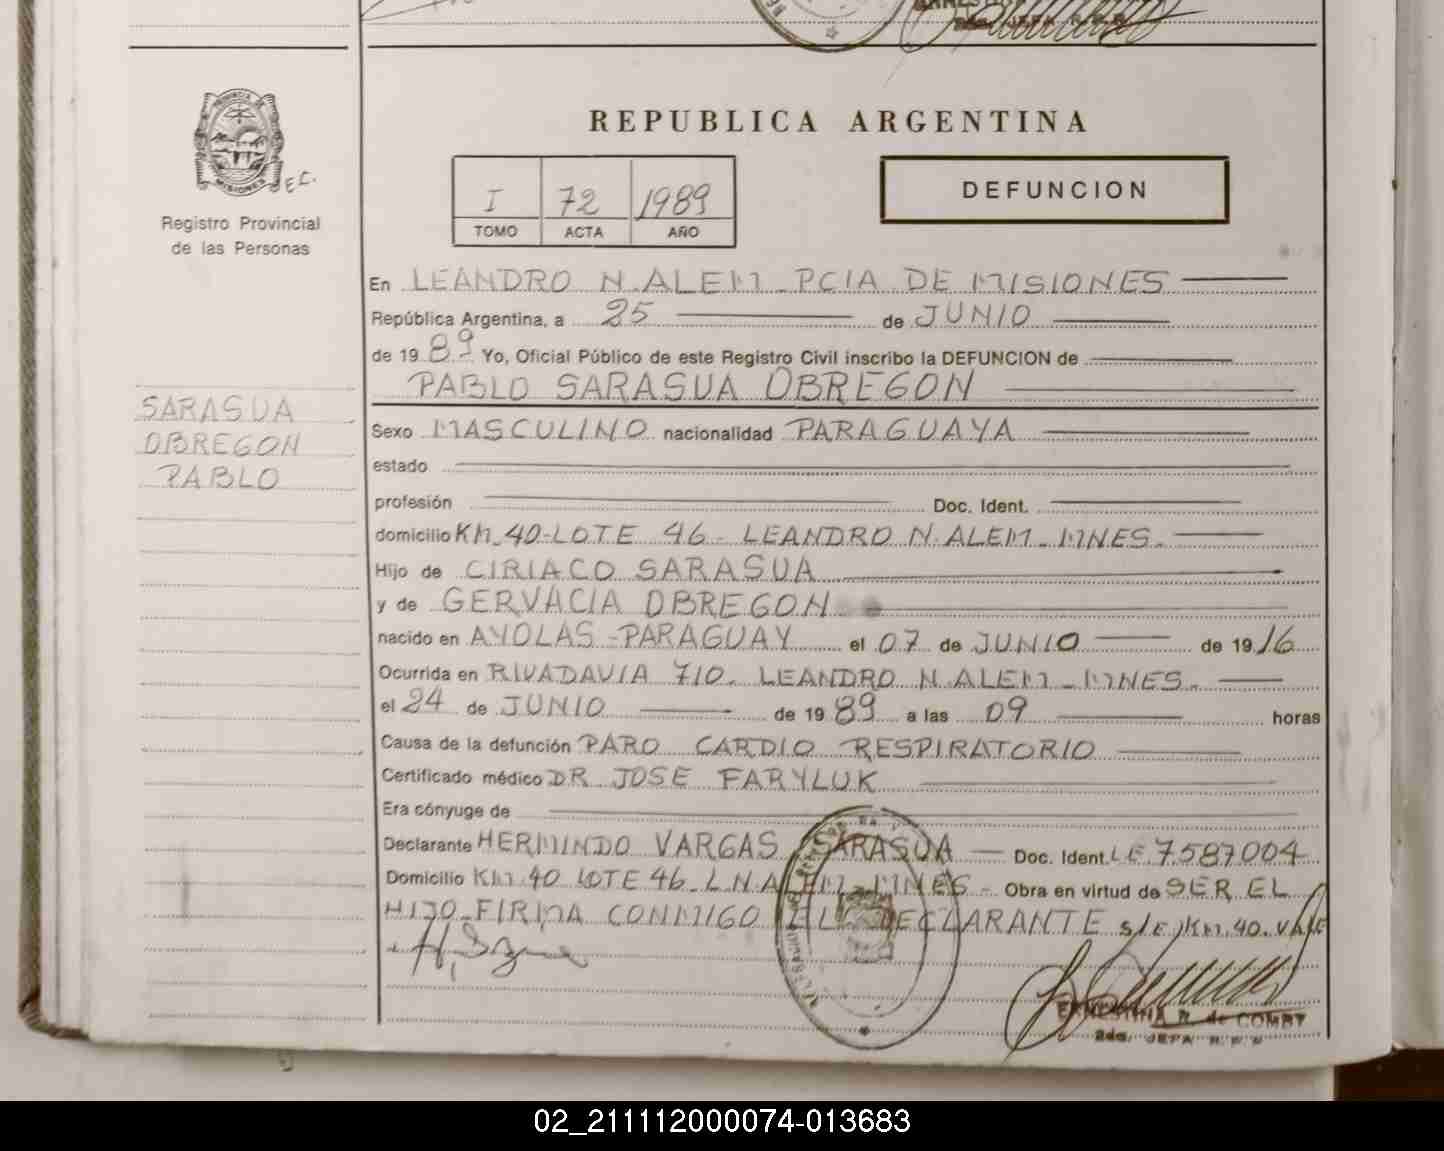 REPUBLICA ARGENTINA
PROVINCIA DE
MISIONES
E.C.
Registro Provincial
de las Personas
I 72 1989
TOMO ACTA AÑO
DEFUNCION
En LEANDRO N. ALEM - PCIA DE MISIONES
República Argentina, a 25 de JUNIO
de 1989 Yo, Oficial Público de este Registro Civil inscribo la DEFUNCION de
PABLO SARASUA OBREGON
SARASUA
OBREGON
PABLO
Sexo MASCULINO nacionalidad PARAGUAYA
estado
profesión Doc. Ident.
domicilio KM. 40-LOTE 46- LEANDRO N. ALEM - MNES-
Hijo de CIRIACO SARASUA
y de GERVACIA OBREGON
nacido en AYOLAS-PARAGUAY el 07 de JUNIO de 1916
Ocurrida en RIVADAVIA 710- LEANDRO N. ALEM - MNES-
el 24 de JUNIO de 1989 a las 09 horas
Causa de la defunción PARO CARDIO RESPIRATORIO
Certificado médico DR JOSE FARYLUK
Era cónyuge de
Declarante HERMINDO VARGAS SARASUA Doc. Ident. LE 7587004
Domicilio KM. 40 LOTE 46- L.N. ALEM - MNES- Obra en virtud de SER EL
HIJO-FIRMA CONMIGO EL DECLARANTE S/E) KM. 40. VALE
ERNESTINA R. de COMBY
2da. JEFA R.P.P.
02_211112000074-013683